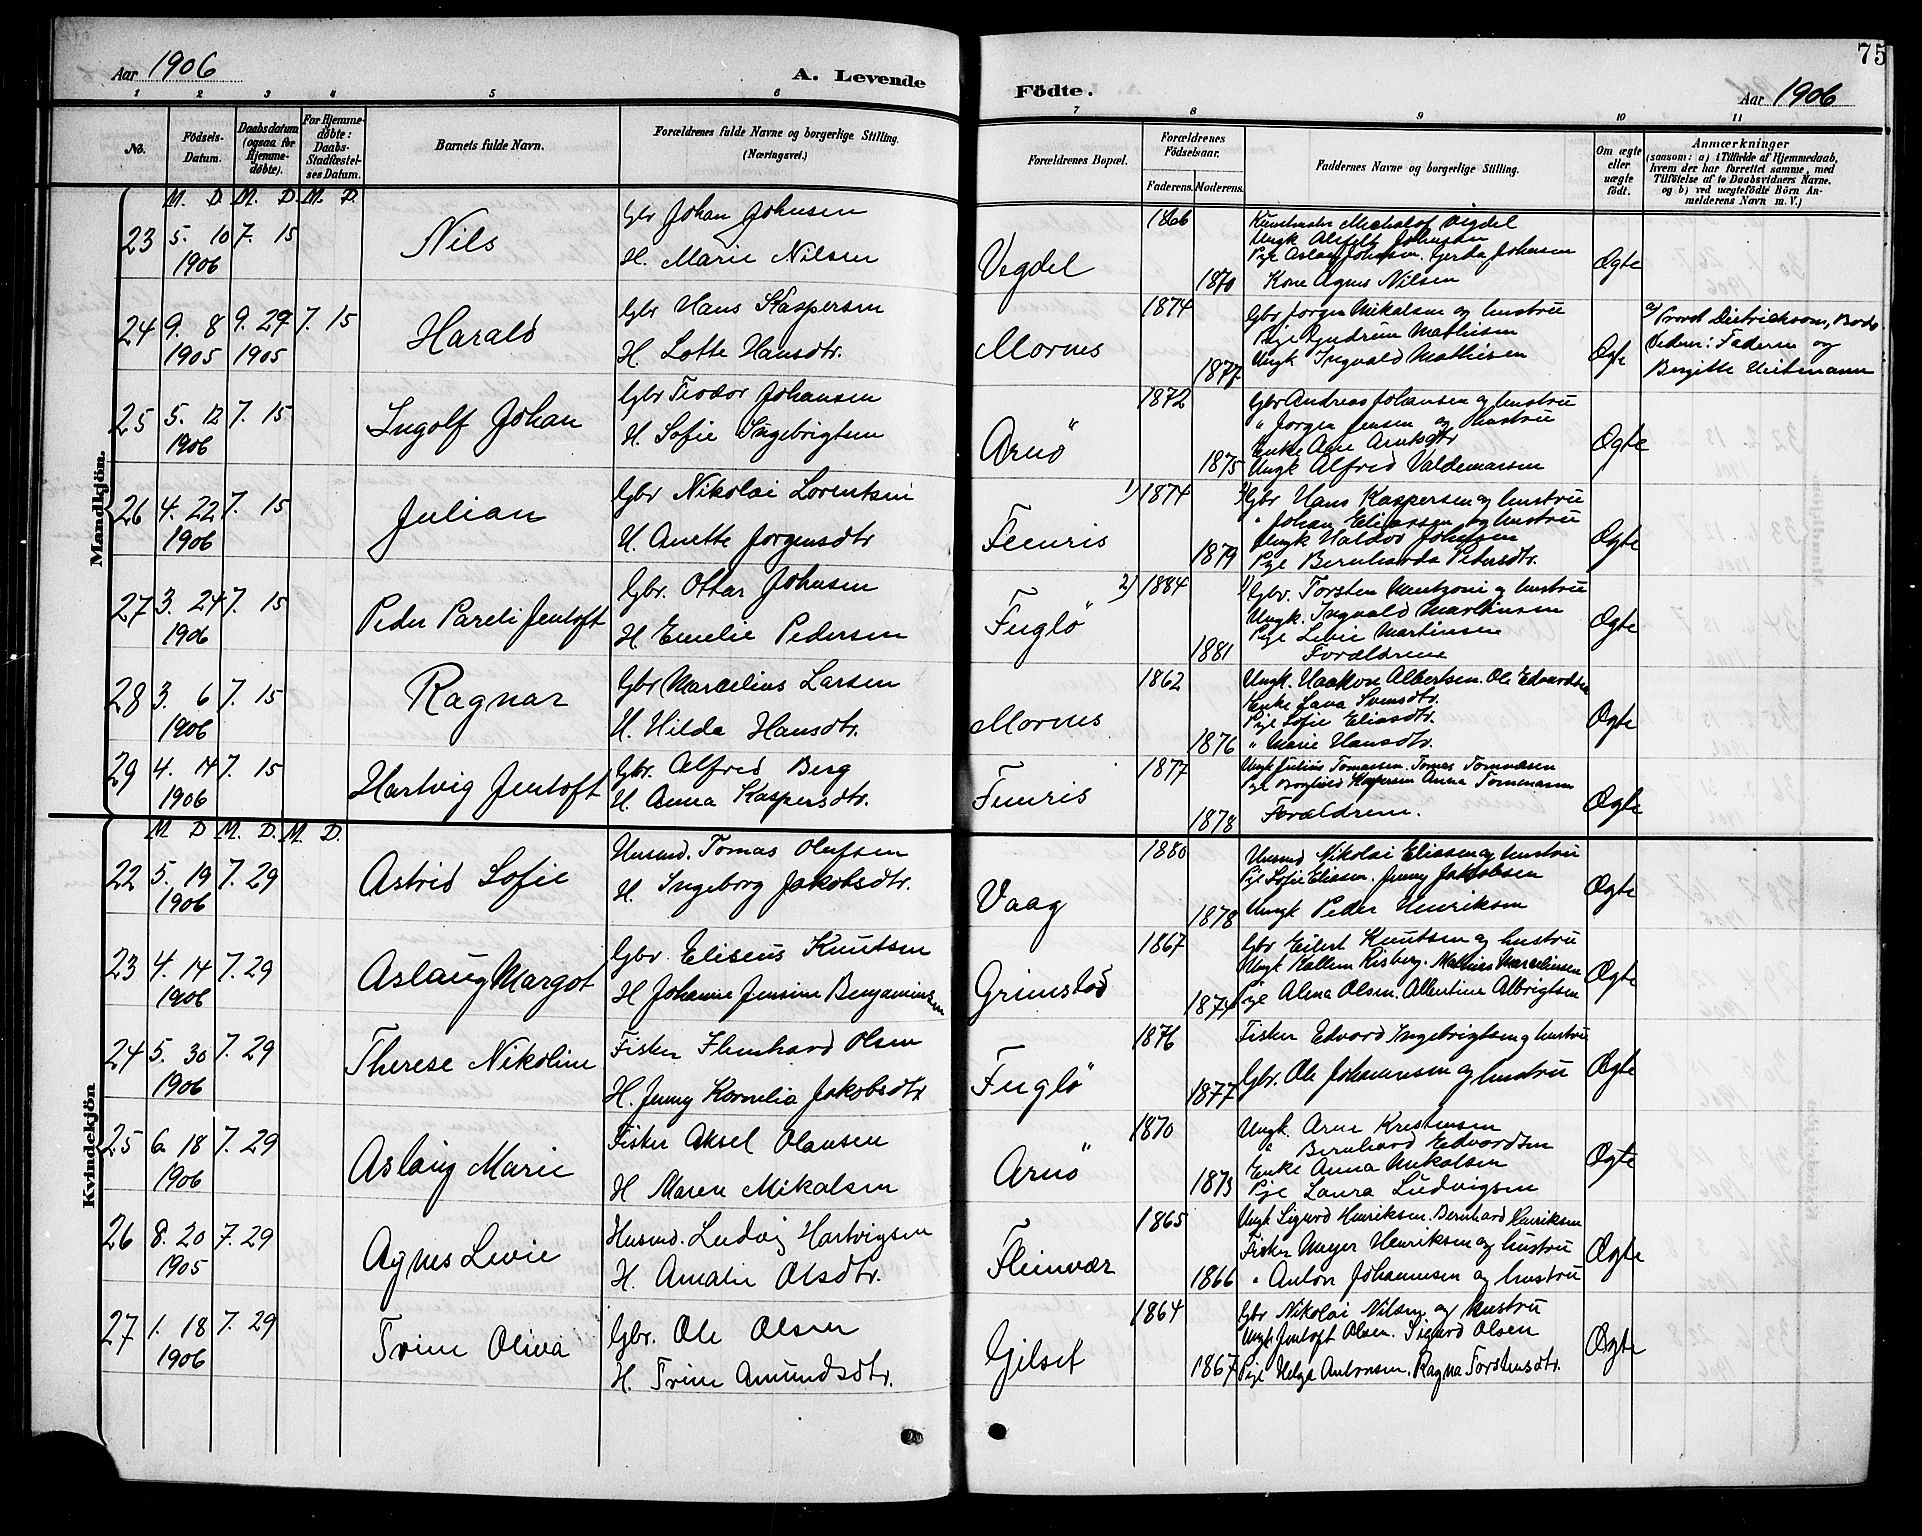 75
Aar 1906
A. Levende
Födte.
Aar 1906
1 2 3 4 5 6 7 8 9 10 11
No.
Födsels-Datum.
Daabsdatum (ogsaa for Hjemme-døbte).
For Hjemme-døbte: Daabs-Stadfæstel-ses Datum.
Barnets fulde Navn.
Forældrenes fulde Navne og borgerlige Stilling.
(Næringsvei.)
Forældrenes Bopæl.
Forældrenes Födselsaar.
Faderens. Moderens.
Faddernes Navne og borgerlige Stilling.
Om ægte eller uægte født.
Anmærkninger
(saasom: a) i Tilfælde af Hjemmedaab,
hvem der har forrettet samme, med
Tilföielse af to Daabsvidners Navne,
og b) ved uægtefödte Börn An-
melderens Navn m. V.)
Mandkjön.
M. D. M. D. M. D.
23 5. 10 1906 7. 15
Nils
Gbr Johan Johnsen
H. Marie Nilsen
Vegdel
1866
1870
Vigdel
Ungk Johnsen
Pige Aslaug Johnsen. Gerda Johnsen
Kone Agnes Nilsen
Ægte
24 9. 8 1905 9. 29 1905 7. 15
Harald
Gbr Hans Kaspersen
H. Lotte Hansdtr.
Mornes
1874
1877
Gbr Jørgen Mikalsen og hustru
Pige Gudrun Mathisen
Ungk Ingvald Mathisen
Ægte
a) Provst Dietrichson, Bodø
: Faderen og
Birgitte
25 5. 12 1906 7. 15
Ingolf Johan
Gbr Teodor Johansen
H. Sofie Ingebrigtsen
Arnö
1872
1875
Gbr Andreas Johansen og hustru
" Jørgen Jensen og hustru
Enke Ane Arntsdtr
Ungk Alfred Valdemarsen
Ægte
26 4. 22 1906 7. 15
Julian
Gbr Nikolai Lorentsen
H. Anette Jørgensdtr
1) 1874
1879
Gbr Hans Kaspersen og hustru
" Johan Eliassen og hustru
Ungk Haldor Johnsen
Pige Bernharda Petersdtr.
Ægte
27 3. 24 1906 7. 15
Peder Pareli Jentoft
Gbr. Ottar Johnsen
H. Emelie Pedersen
Fuglö
2) 1884
1881
Gbr. Torsten og hustru
Ungk. Ingvald Martinsen
Pige Levie Martinsen
Forældrene
Ægte
28 3. 6 1906 7. 15
Ragnar
Gbr Marcelius Larsen
H. Hilda Hansdtr.
Mornes
1862
1876
Ungk. Haakon Albertsen. Ole Edvardsen
Enke Svensdtr.
Pige Sofie Eliasdtr.
" Marie Hansdtr.
Ægte
29 4. 14 1906 7. 15
Hartvig Jentoft
Gbr. Alfred Berg
H. Anna Kaspersdtr.
1877
1878
Ungk Julius Tomassen. Tomas Tomassen
Pige Borghild Kaspersen Anna
Forældrene.
Ægte
Kvindekjön
M. D. M. D. M. D.
22 5. 19 1906 7. 29
Astrid Sofie
Husmd. Tomas Olufsen
H. Ingeborg Jakobsdtr.
Vaag
1880
1878
Husmd Nikolai Eliasen og hustru
Pige Sofie Eliasen. Jenny Jakobsen
Ungk Peder Henriksen
Ægte
23 4. 14 1906 7. 29
Aslaug Margot
Gbr. Eliseus Knutsen
H Johanne Jensine Benjaminsen
Grimstad
1867
1874
Gbr Eilert Knutsen og hustru
Ungk Risberg. Mathias Marcelinsen
Pige Alma Olsen. Albertine Albrigtsen
Ægte
24 5. 30 1906 7. 29
Therese Nikoline
Fisker Olsen
H. Jenny Kornelia Jakobsdtr
Fuglö
1876
1877
Fisker Edvard Ingebrigtsen og hustru
Gbr. Ole Johannesen og hustru
Ægte
25 6. 18 1906 7. 29
Aslaug Marie
Fisker Aksel Olausen
H Maren Mikalsen
Arnö
1870
1873
Ungk. Arne Kristensen
" Bernhard Edvardsen
Enke Anna Mikalsen
Pige Laura Ludvigsen
Ægte
26 8. 20 1905 7. 29
Agnes Levie
Husmd. Ludvig Hartvigsen
H. Amalie Olsdtr.
Fleinvær
1865
1866
Ungk Sigurd Henriksen. Bernhard Henriksen
Fisker Meyer Henriksen og hustru
" Anton Johannesen og hustru
Ægte
27 1. 18 1906 7. 29
Trine Oliva
Gbr. Ole Olsen
H. Trine Amundsdtr.
Gilset
1864
1867
Gbr Nikolai Nilsen og hustru
Ungk Jentoft Olsen. Sigurd Olsen
Pige Helga Antonsen. Ragna Torstensdtr.
Ægte